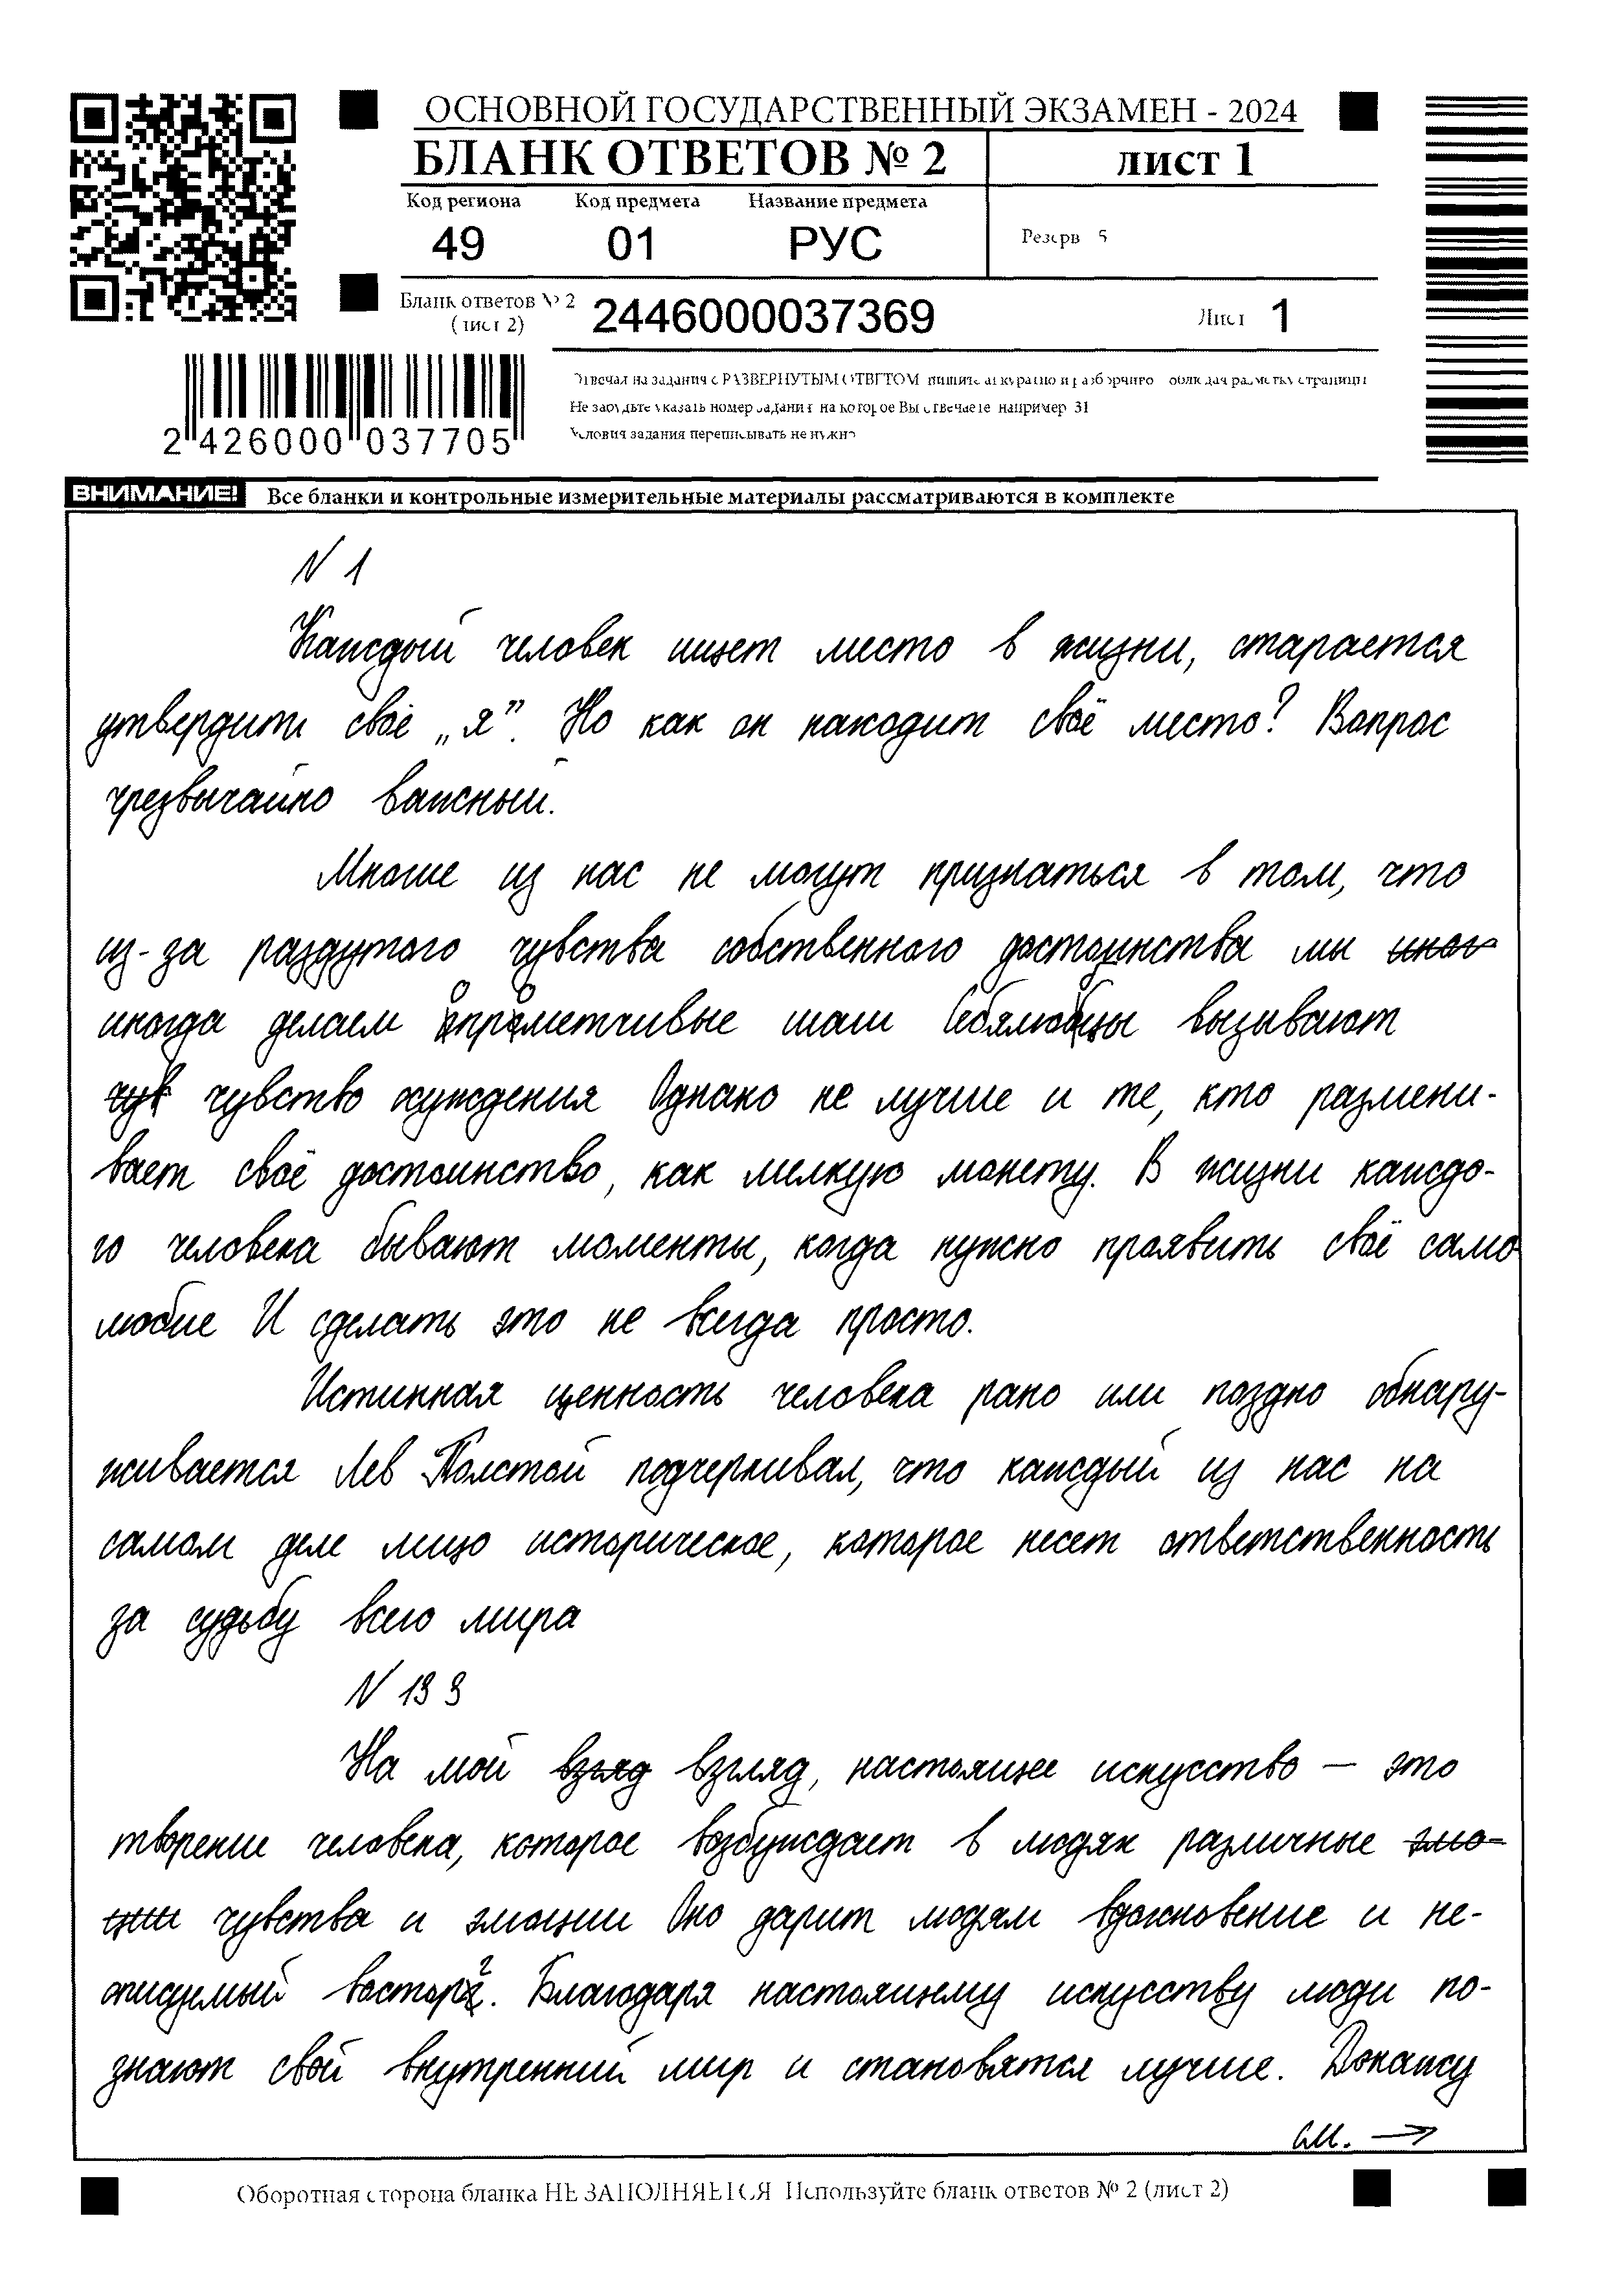 ОСНОВНОЙ ГОСУДАРСТВЕННЫЙ ЭКЗАМЕН - 2024
БЛАНК ОТВЕТОВ № 2
лист 1
Код региона Код предмета Название предмета
49 01 РУС
Резерв 5
Бланк ответов № 2
(лист 2)
2446000037369
Лист 1
2 426000 037705
Отвечая на задания с РАЗВЕРНУТЫМ ОТВЕТОМ пишите аккуратно и разборчиво соблюдая разметку страницы
Не забудьте указать номер задания на которое Вы отвечаете например 31
Условия задания переписывать не нужно
ВНИМАНИЕ! Все бланки и контрольные измерительные материалы рассматриваются в комплекте
N 1
Каждый человек ищет место в жизни, старается
утвердить своё „я”. Но как он находит своё место? Вопрос
чрезвычайно важный.
Многие из нас не могут признаться в том, что
из-за раздутого чувства собственного достоинства мы иног
иногда делаем опрометчивые шаги Себялюбцы вызывают
чув чувство осуждения Однако не лучше и те, кто размени-
вает своё достоинство, как мелкую монету. В жизни каждо-
го человека бывают моменты, когда нужно проявить своё само
любие И сделать это не всегда просто.
Истинная ценность человека рано или поздно обнару-
живается Лев Толстой подчеркивал, что каждый из нас на
самом деле лицо историческое, которое несет ответственность
за судьбу всего мира
N 13 3
На мой взгяд взгляд, настоящее искусство — это
творение человека, которое возбуждает в людях различные эмо-
ции чувства и эмоции Оно дарит людям вдохновение и не-
ожидемый восторг. Благодаря настоящему искусству люди по-
знают свой внутренний мир и становятся лучше. Докажу
см. →
Оборотная сторона бланка НЕ ЗАПОЛНЯЕТСЯ Используйте бланк ответов № 2 (лист 2)